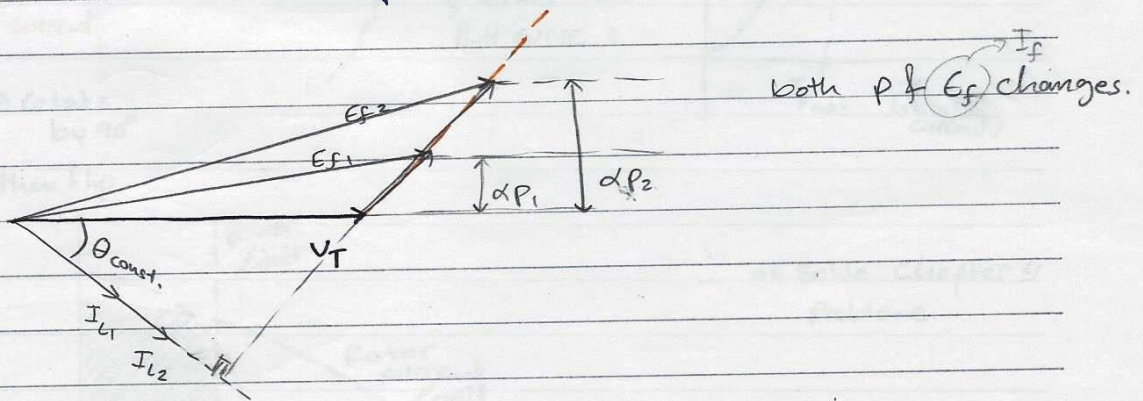 I_f
both P & E_f changes.
E_f2
E_f1
αP_1
αP_2
V_T
θ_const.
I_L1
I_L2